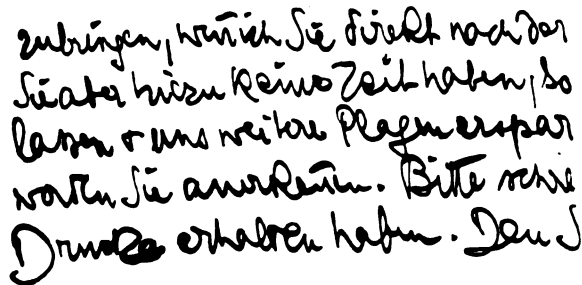 zubringen, weil ich Sie direkt nach der
Sie aber hiezu keine Zeit haben, so
lassen & uns weitere Plagen erspar
worten Sie anerkennen. Bitte schrei
Drucke erhalten haben. Den S